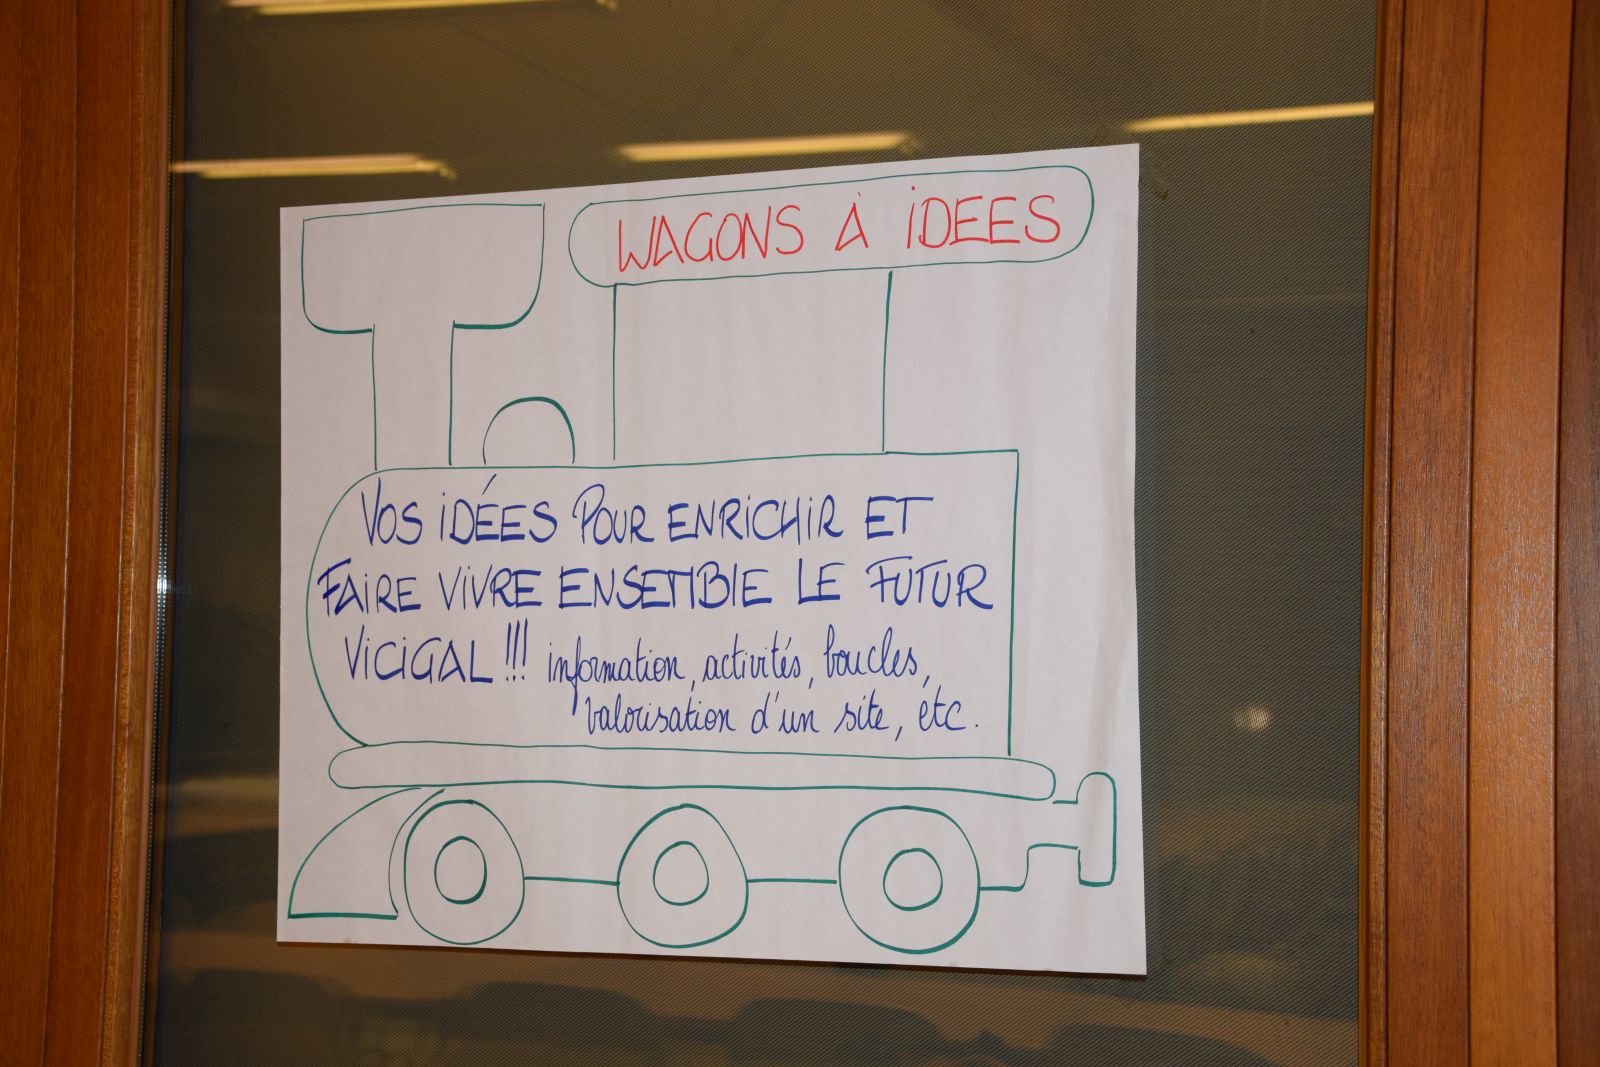 WAGONS À IDEES
VOS IDÉES POUR ENRICHIR ET
FAIRE VIVRE ENSEMBLE LE FUTUR
VICIGAL !!! information, activités, boucles,
valorisation d'un site, etc.